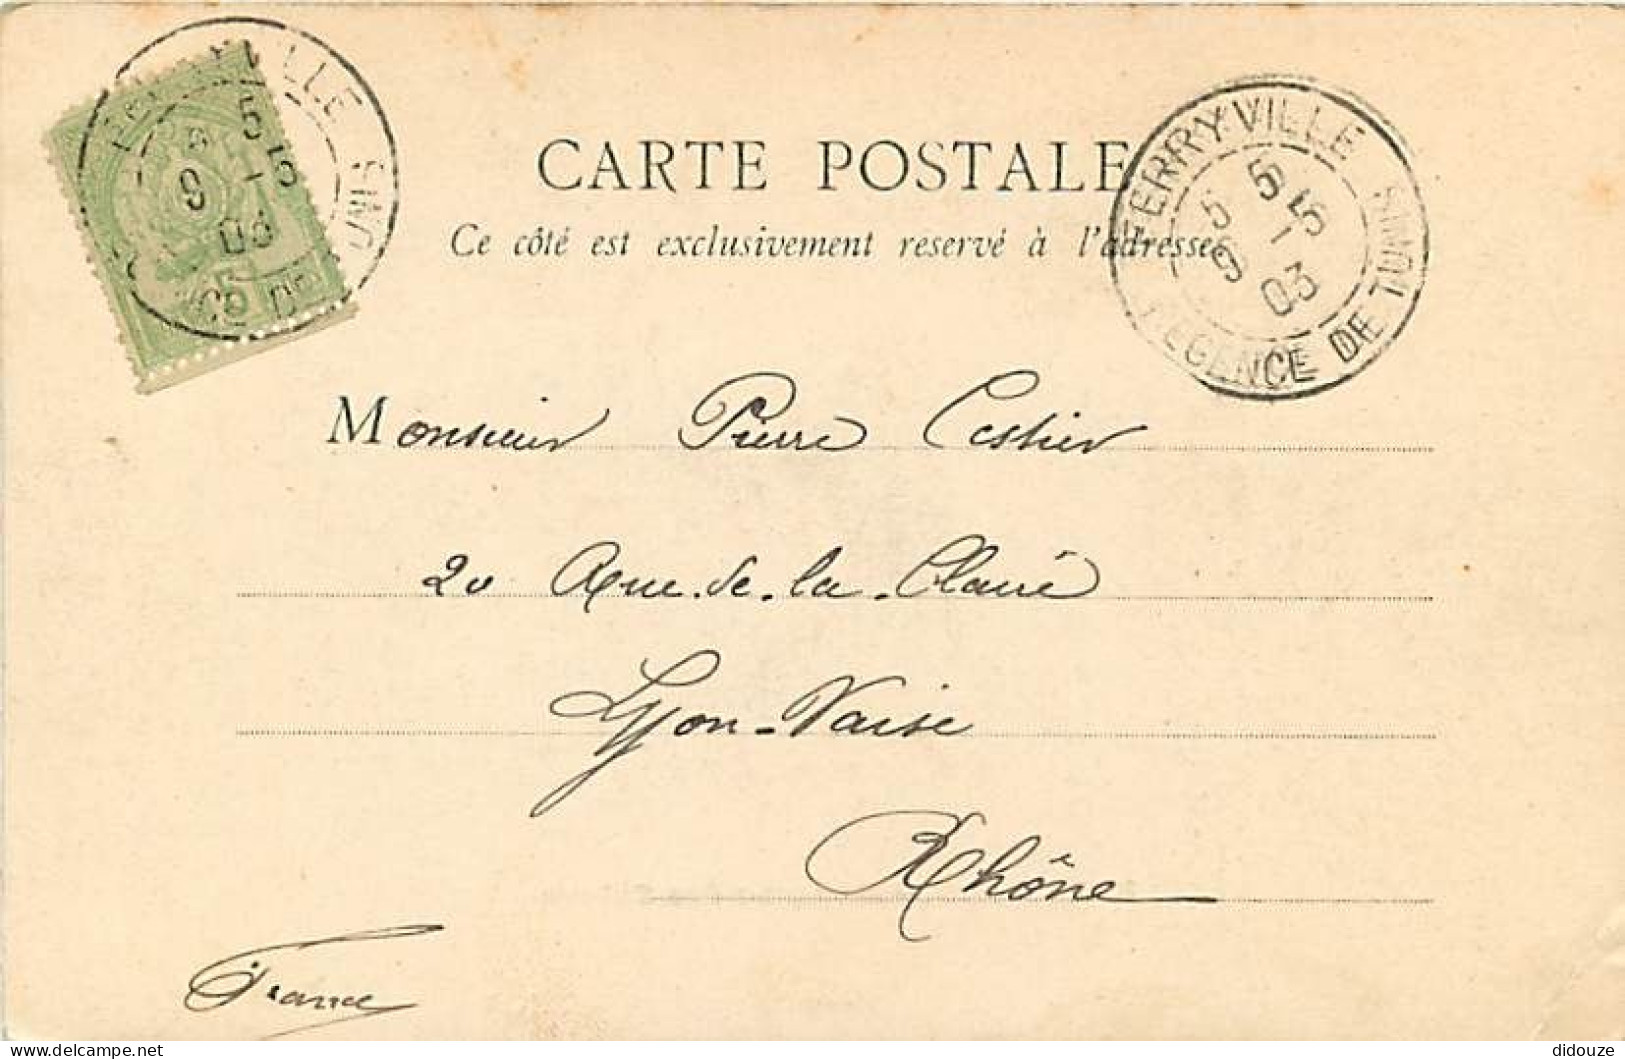 CARTE POSTALE
Ce côté est exclusivement reservé à l'adresse
FERRYVILLE
REGENCE DE TUNIS
5
5 15
9 1
03
5
Monsieur Pierre Cestier
20 Rue de la Claire
Lyon-Vaise
Rhône
France
delcampe.net
didouze